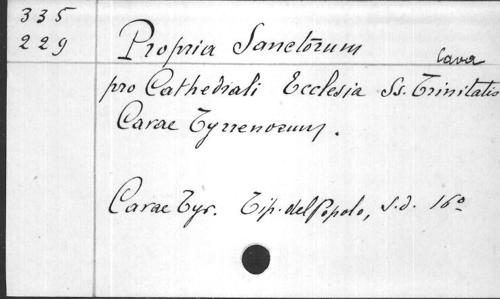 335
229
Propria Sanctōrum
Cava
pro Cathedrali Ecclesia Ss. Trinitatis
Cavae Tyrrenorum.
Cavae Tyr. Tip. del Popolo, s.d. 16º